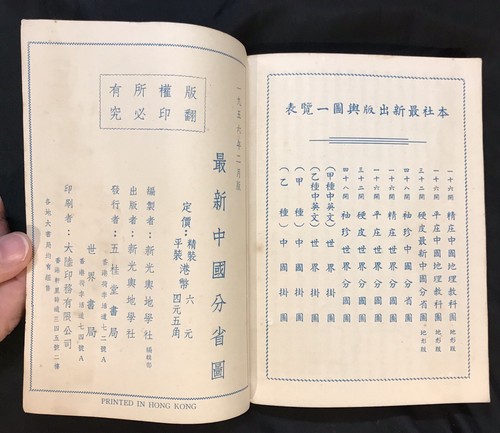 本社最新出版輿圖一覽表
一十六開 精庄中國地理教科圖 地形版
一十六開 平庄中國地理教科圖 地形版
三十二開 硬皮最新中國分省圖 地形版
四十八開 袖珍中國分省圖
一十六開 精庄世界分國圖
一十六開 平庄世界分國圖
三十二開 硬皮世界分國圖
四十八開 袖珍世界分國圖
(甲種中英文)世界掛圖
(乙種中英文)世界掛圖
(甲種)中國掛圖
(乙種)中國掛圖
版權所有
翻印必究
一九五六年二月版
最新中國分省圖
定價：精裝港幣六元
平裝 四元五角
編製者：新光輿地學社編輯部
出版者：新光輿地學社
香港荷李活道七二號A
發行者：五桂堂書局
香港荷李活道七四號A
世界書局
印刷者：大陸印務有限公司
香港軒里詩道三四五號二樓
各地大書局均有經售
PRINTED IN HONG KONG